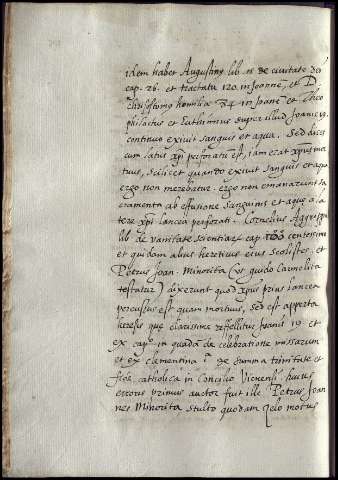 idem habet Augustinꝯ lib. 15 de ciuitate dei
cap. 26. et tractatu 120 in Joanne, et D.
chrisostomo homilia 84 in Joane et Theo
philactus et Euthimius super illud Joanis 19
continuo exiuit sanguis et aqua. Sed dices
cum latus xp̄i perforatū est, iam erat xp̄us mor
tuus, scilicet quando exiuit sanguis et aqua
ergo non merebatur. ergo non emanarunt sa
cramenta ab effusione sanguinis et aquę a la
tere xp̄i lancea perforati. Cornelius Agrippa
lib. de vanitate scientiar cap.
et quidam alius heretius eius et
Petrus Joan. Minorita (vt guido Carmelita
testatur) dixerunt quod xp̄us prius lancea
percussus est quam mortuus, sed est apperta
heresis que clarissime reffellitur Joanis 19 et
ex capᵒ in quadā de celebratione missarum
et ex clementina 1ᵃ de summa trinitate et
fide catholica in Concilio Vienensi huius
erroris primus auctor fuit ille Petrus Joan
nes Minorita stulto quodam zelo motus